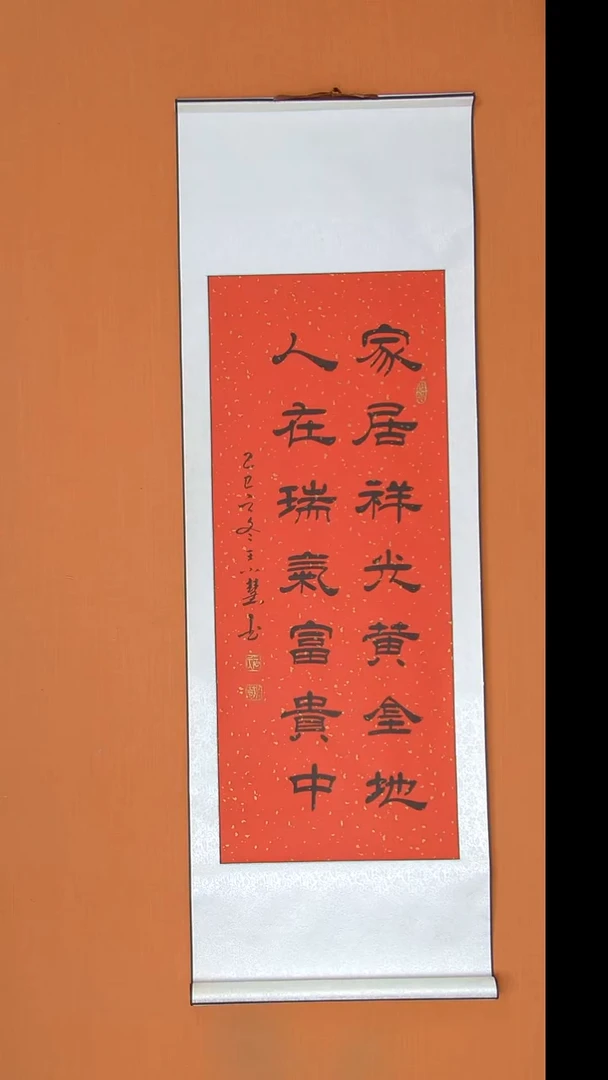 家居祥光黄金地
人在瑞氣富貴中
乙巳之冬王小慧书